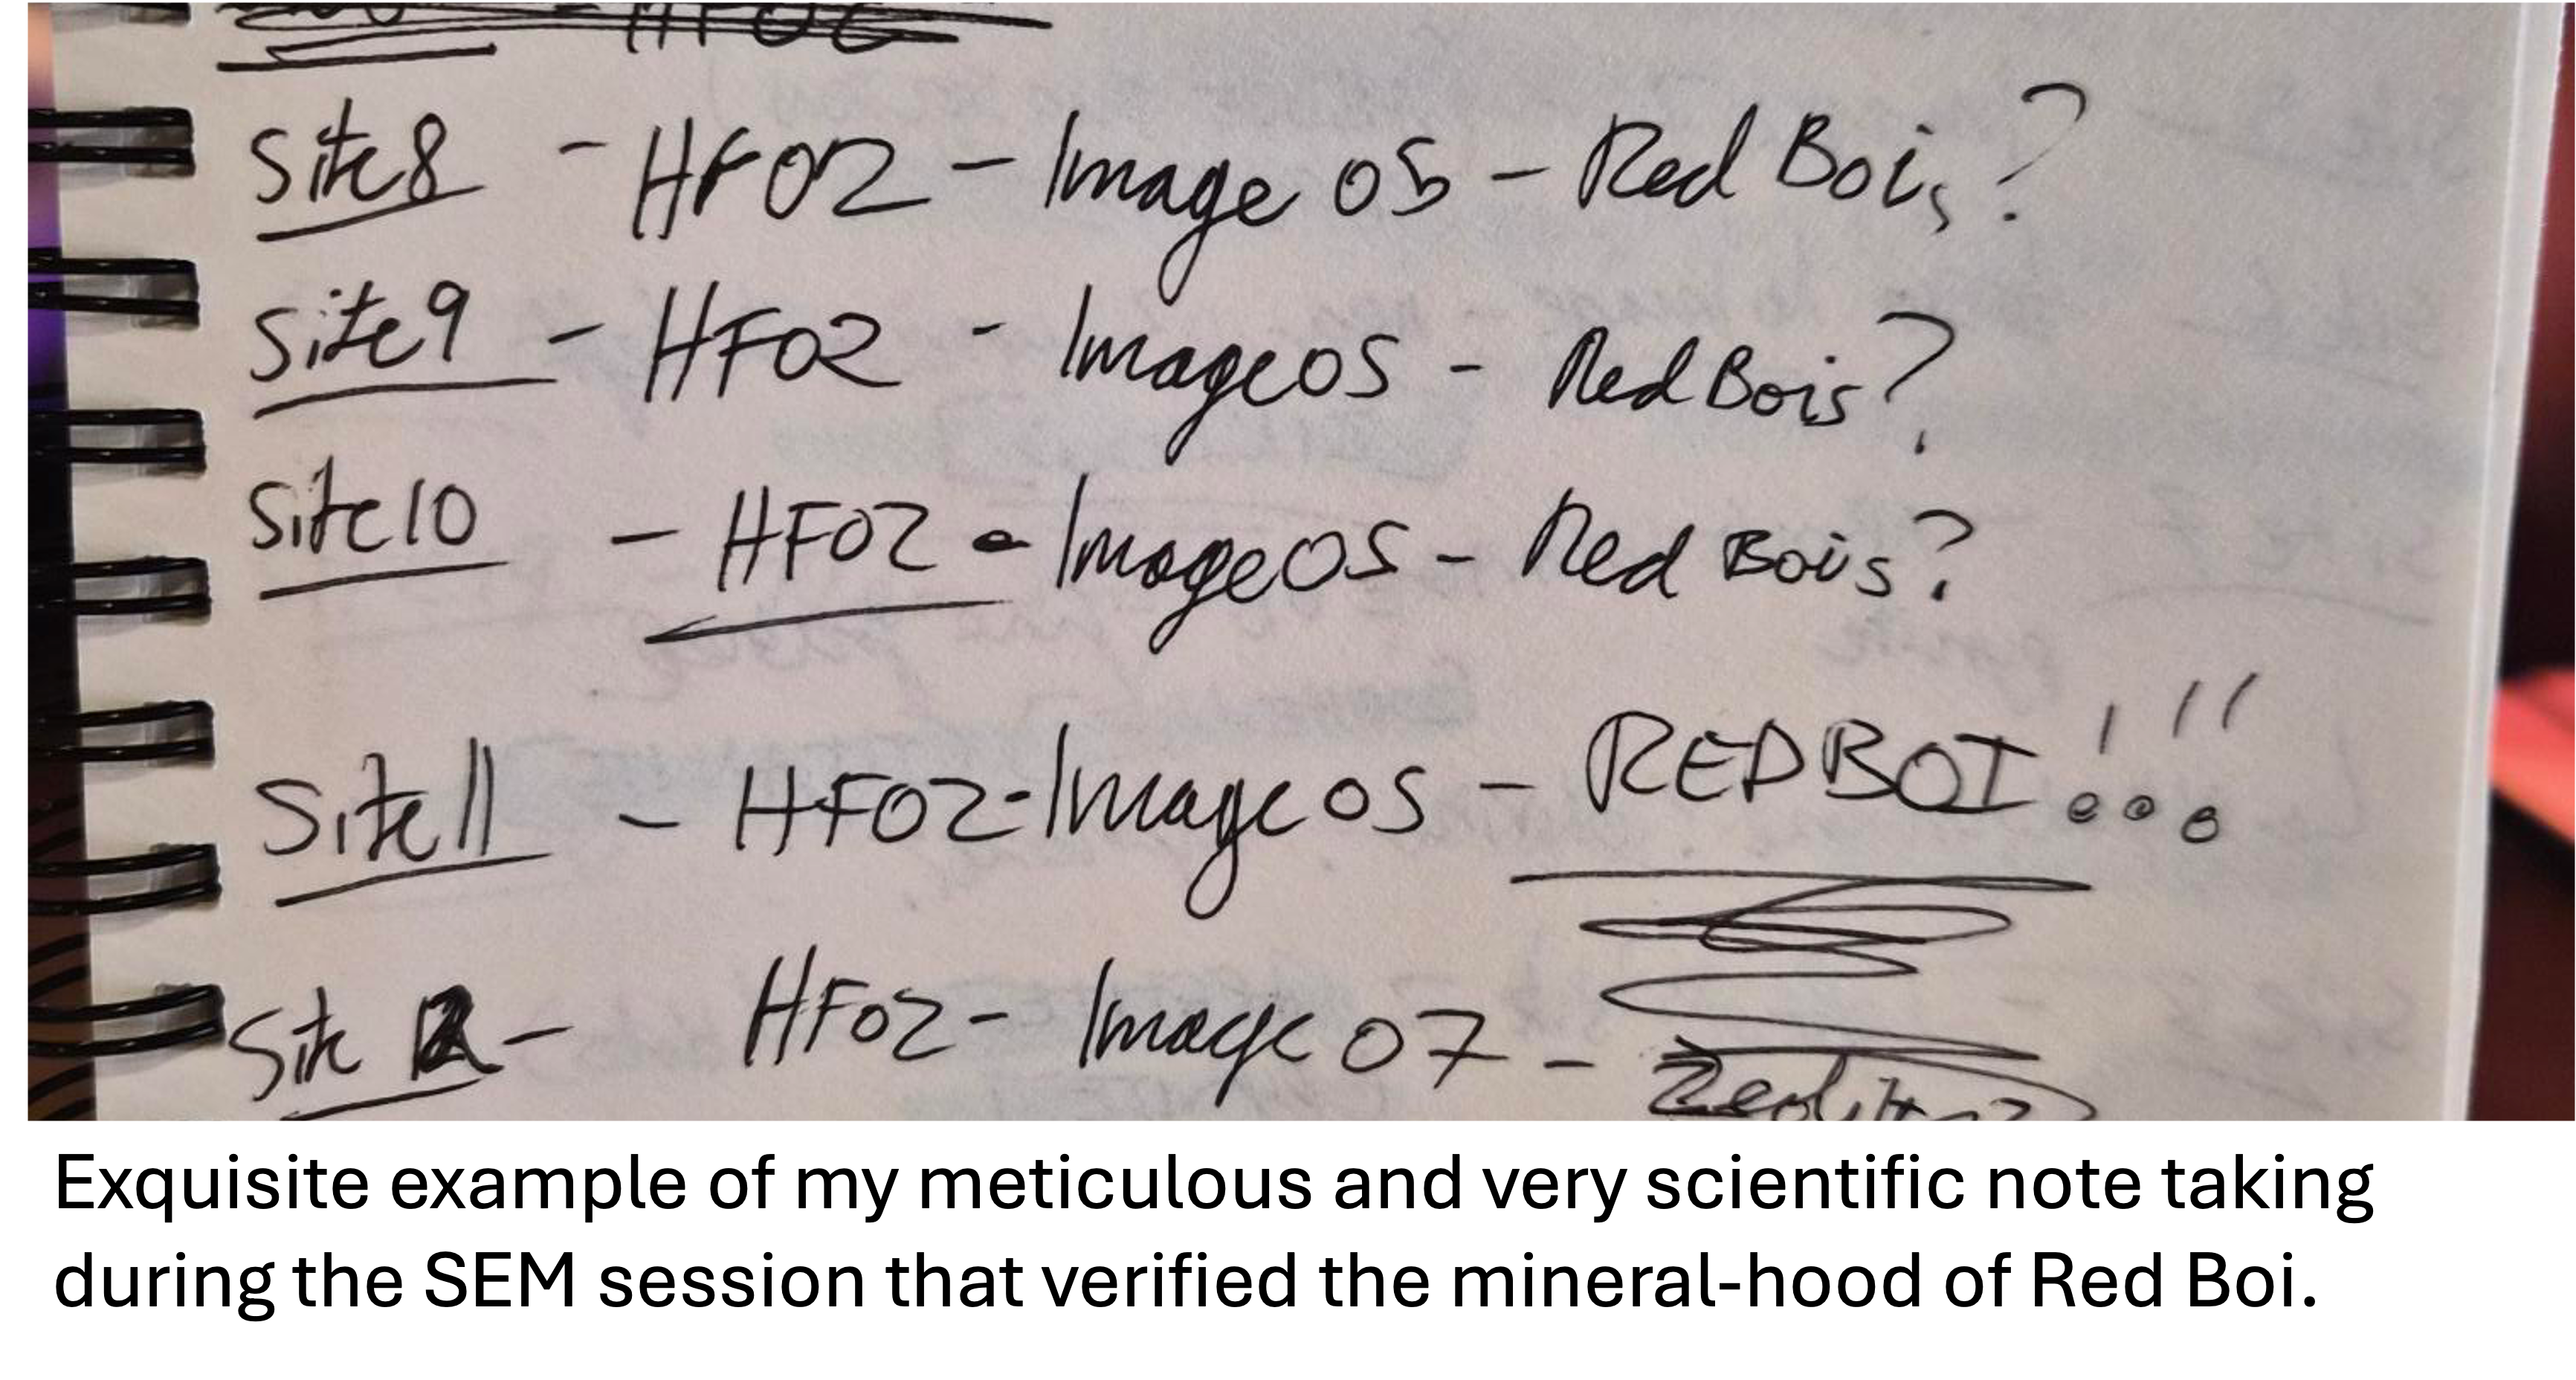 HFO2
Site 8 - HFO2 - Image 05 - Red Bois?
Site 9 - HFO2 - Image 05 - Red Bois?
Site 10 - HFO2 - Image 05 - Red Bois?
Site 11 - HFO2 - Image 05 - RED BOI!!!
Site 12 - HFO2 - Image 07 -
Exquisite example of my meticulous and very scientific note taking
during the SEM session that verified the mineral-hood of Red Boi.